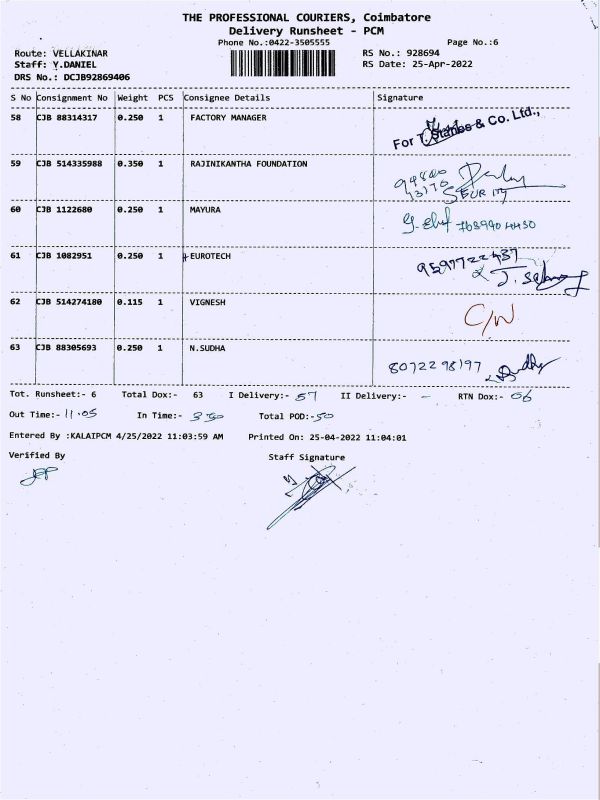 THE PROFESSIONAL COURIERS, Coimbatore
Delivery Runsheet - PCM
Phone No.:0422-3505555 Page No.:6
Route: VELLAKINAR RS No.: 928694
Staff: Y.DANIEL RS Date: 25-Apr-2022
DRS No.: DCJB92869406
S No Consignment No Weight PCS Consignee Details Signature
58 CJB 88314317 0.250 1 FACTORY MANAGER
For T. Stanes & Co. Ltd.,
59 CJB 514335988 0.350 1 RAJINIKANTHA FOUNDATION
60 CJB 1122680 0.250 1 MAYURA
61 CJB 1082951 0.250 1 EUROTECH
62 CJB 514274180 0.115 1 VIGNESH
C/N
63 CJB 88305693 0.250 1 N.SUDHA
8072298197
Tot. Runsheet:- 6 Total Dox:- 63 I Delivery:- 57 II Delivery:- - RTN Dox:- 06
Out Time:- 11.05 In Time:- 3 30 Total POD:- 50
Entered By :KALAIPCM 4/25/2022 11:03:59 AM Printed On: 25-04-2022 11:04:01
Verified By Staff Signature